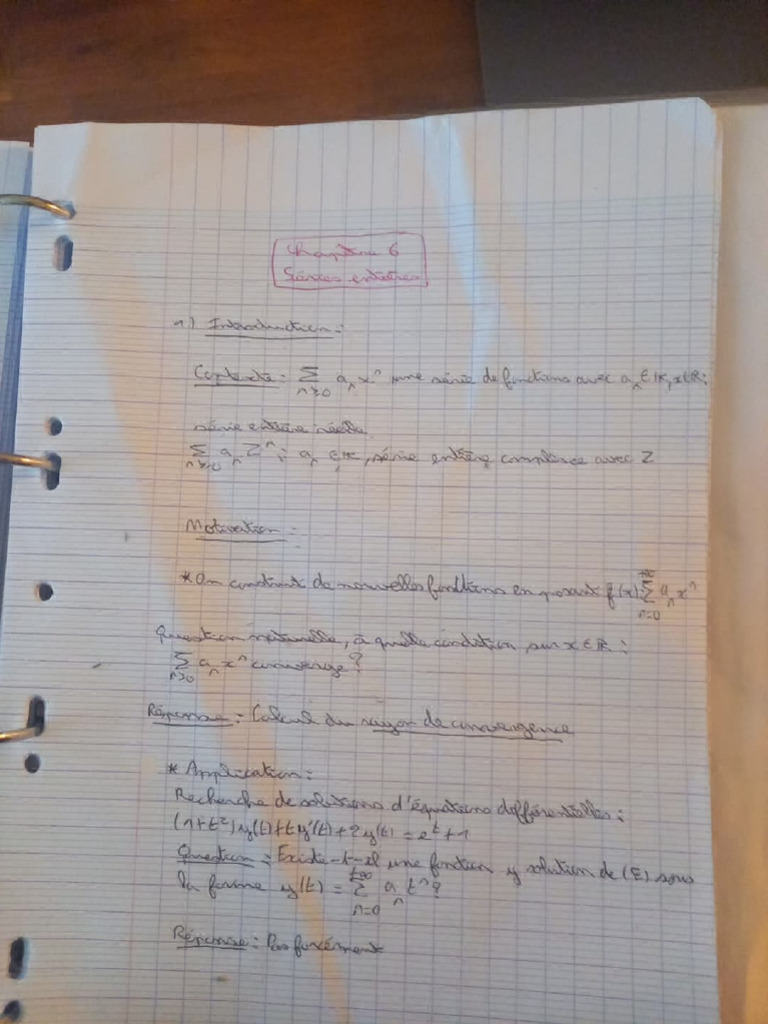 Chapitre 6
Séries entières
1) Introduction :
Contexte : ∑_{n≥0} a_n x^n une série de fonctions avec a_n ∈ K, x ∈ R :
série entière réelle
∑_{n≥0} a_n Z^n : a_n ∈ K, série entière complexe avec Z
Motivation :
* On construit de nouvelles fonctions en posant f(x) ∑_{n=0}^{+∞} a_n x^n
Question naturelle, à quelle condition sur x ∈ R :
∑_{n≥0} a_n x^n converge ?
Réponse : Calcul du rayon de convergence
* Application :
Recherche de solutions d'équations différentielles :
(1+t²) y(t) + t y'(t) + 2 y(t) = e^t + 1
Question : Existe-t-il une fonction y solution de (E) sous
la forme y(t) = ∑_{n=0}^{+∞} a_n t^n ?
Réponse : Pas forcément